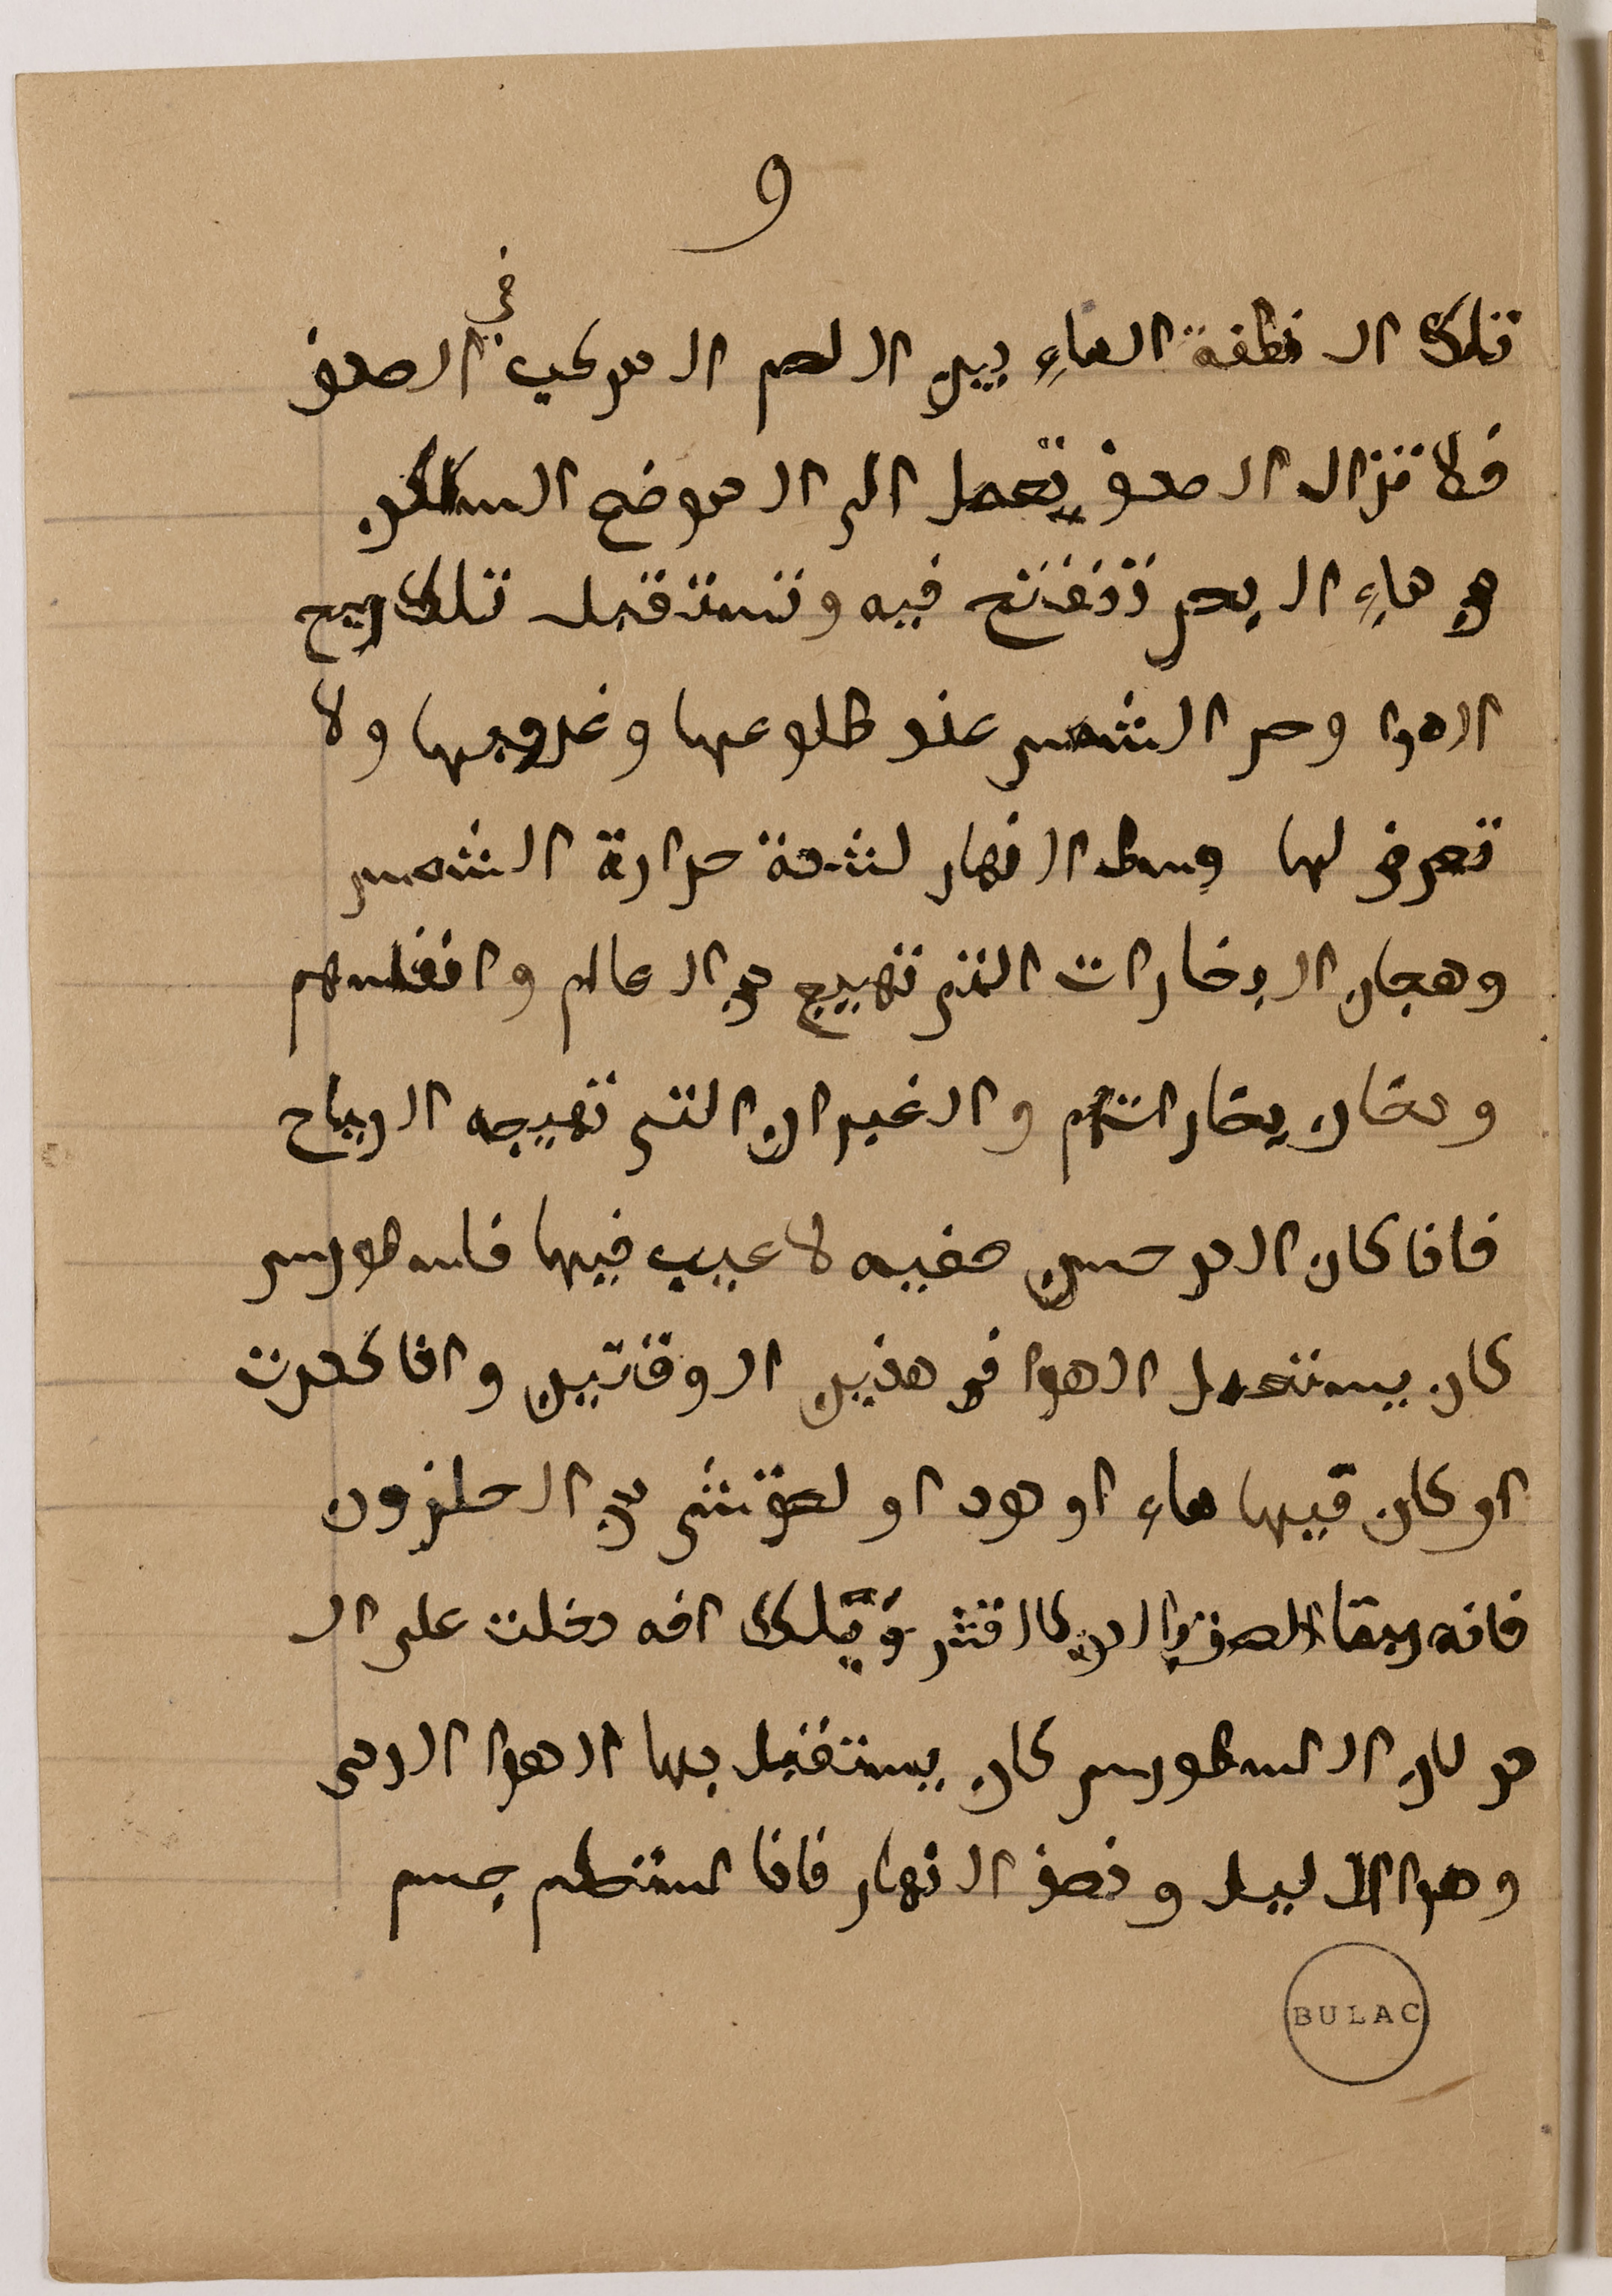 9
تلك النطفة الماء بين اللحم المركب في الصدف
فلا تزال الصدف تعمل الى الموضع الساكن
من ماء البحر تتفتح فيه وتستقبل تلك ريح
الهوا وحر الشمس عند طلوعها وغروبها ولا
تعرض لها وسط النهار لشدة حرارة الشمس
وهجان البخارات التي تهيج من العالم وانفاسهم
ودخان بخاراتهم والغبران التي تهيجه الرياح
فاذا كان الدر حسن صفيه لا عيب فيها فاسطورس
كان يستعمل الهوا في هذين الوقتين واذا كدرت
او كان فيها ماء او دود او لحقتشي من الحلزون
فانه يبقا الدر كالقشر وتلك افه دخلت على ال
در لان السطورس كان يستقبل بها الهوا الردى
وهوا الليل ونصف النهار فاذا استطم جسم
BULAC